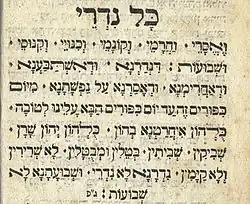 כָּל נִדְרֵי
וֶאֱסָרֵי · וַחֲרָמֵי · וְקוֹנָמֵי · וְכִנּוּיֵי · וְקִנּוּסֵי ·
וּשְׁבוּעוֹת : דִּנְדַרְנָא · וּדְאִשְׁתְּבַּעְנָא ·
וּדְאַחֲרִימְנָא · וּדְאָסַרְנָא עַל נַפְשָׁתָנָא · מִיּוֹם
כִּפּוּרִים זֶה עַד יוֹם כִּפּוּרִים הַבָּא עָלֵינוּ לְטוֹבָה ·
כָּל־הוֹן אִחֲרַטְנָא בְהוֹן · כָּל־הוֹן יְהוֹן שָׁרָן ·
שְׁבִיקִין · שְׁבִיתִין · בְּטֵלִין וּמְבֻטָּלִין · לָא שְׁרִירִין
וְלָא קַיָּמִין · נִדְרָנָא לָא נִדְרֵי · וּשְׁבוּעָתָנָא לָא
שְׁבוּעוֹת : ג״פ